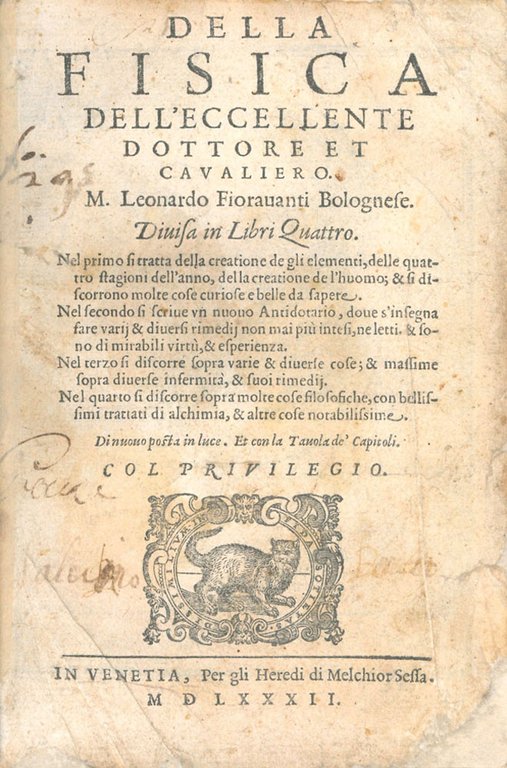 DELLA
FISICA
DELL'ECCELLENTE
DOTTORE ET
CAVALIERO.
M. Leonardo Fiorauanti Bolognese.
Diuisa in Libri Quattro.
Nel primo si tratta della creatione de gli elementi, delle quat-
tro stagioni dell'anno, della creatione de l'huomo; & si di-
scorrono molte cose curiose e belle da sapere.
Nel secondo si scriue vn nuouo Antidotario, doue s'insegna
fare varij & diuersi rimedij non mai più intesi, ne letti. & so-
no di mirabili virtù, & esperienza.
Nel terzo si discorre sopra varie & diuerse cose; & massime
sopra diuerse infermità, & suoi rimedij.
Nel quarto si discorre sopra molte cose filosofiche, con bellis-
simi trattati di alchimia, & altre cose notabilissime.
Di nuouo posta in luce. Et con la Tauola de' Capitoli.
COL PRIVILEGIO.
IN VENETIA, Per gli Heredi di Melchior Sessa.
M D LXXXII.